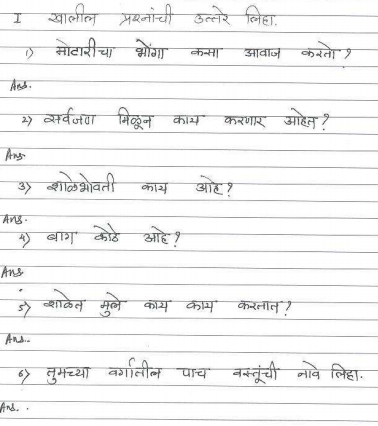 I खालील प्रश्नांची उत्तरे लिहा.
1) मोटारीचा भोंगा कसा आवाज करतो?
Ans.
2) सर्वजण मिळून काय करणार आहेत?
Ans.
3) शाळेभोवती काय आहे?
Ans.
4) बाग कोठे आहे?
Ans
5) शाळेत मुले काय काय करतात?
Ans..
6) तुमच्या वर्गातील पाच वस्तूंची नावे लिहा.
Ans. .